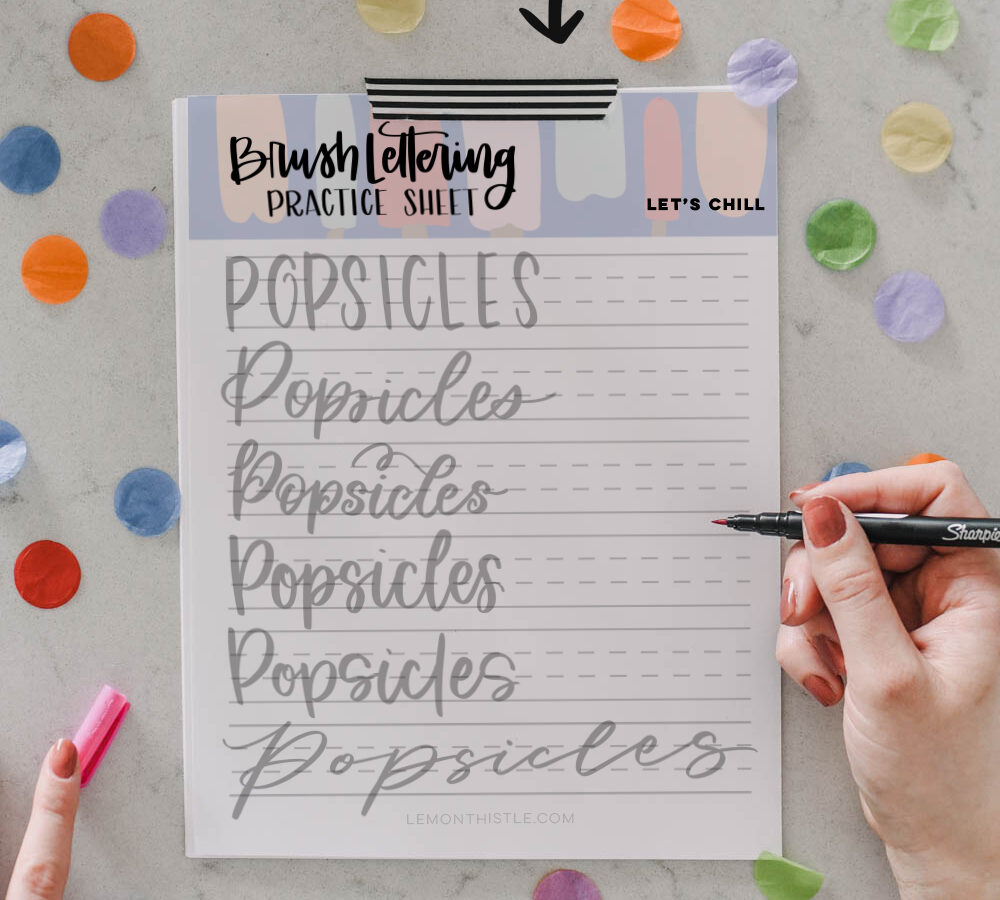 Brush Lettering
PRACTICE SHEET
LET'S CHILL
POPSICLES
Popsicles
Popsicles
Popsicles
Popsicles
Popsicles
LEMONTHISTLE.COM
Sharpie